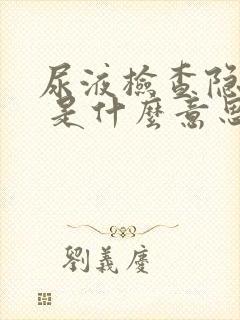 尿液檢查隐
是什麼意思
劉義慶